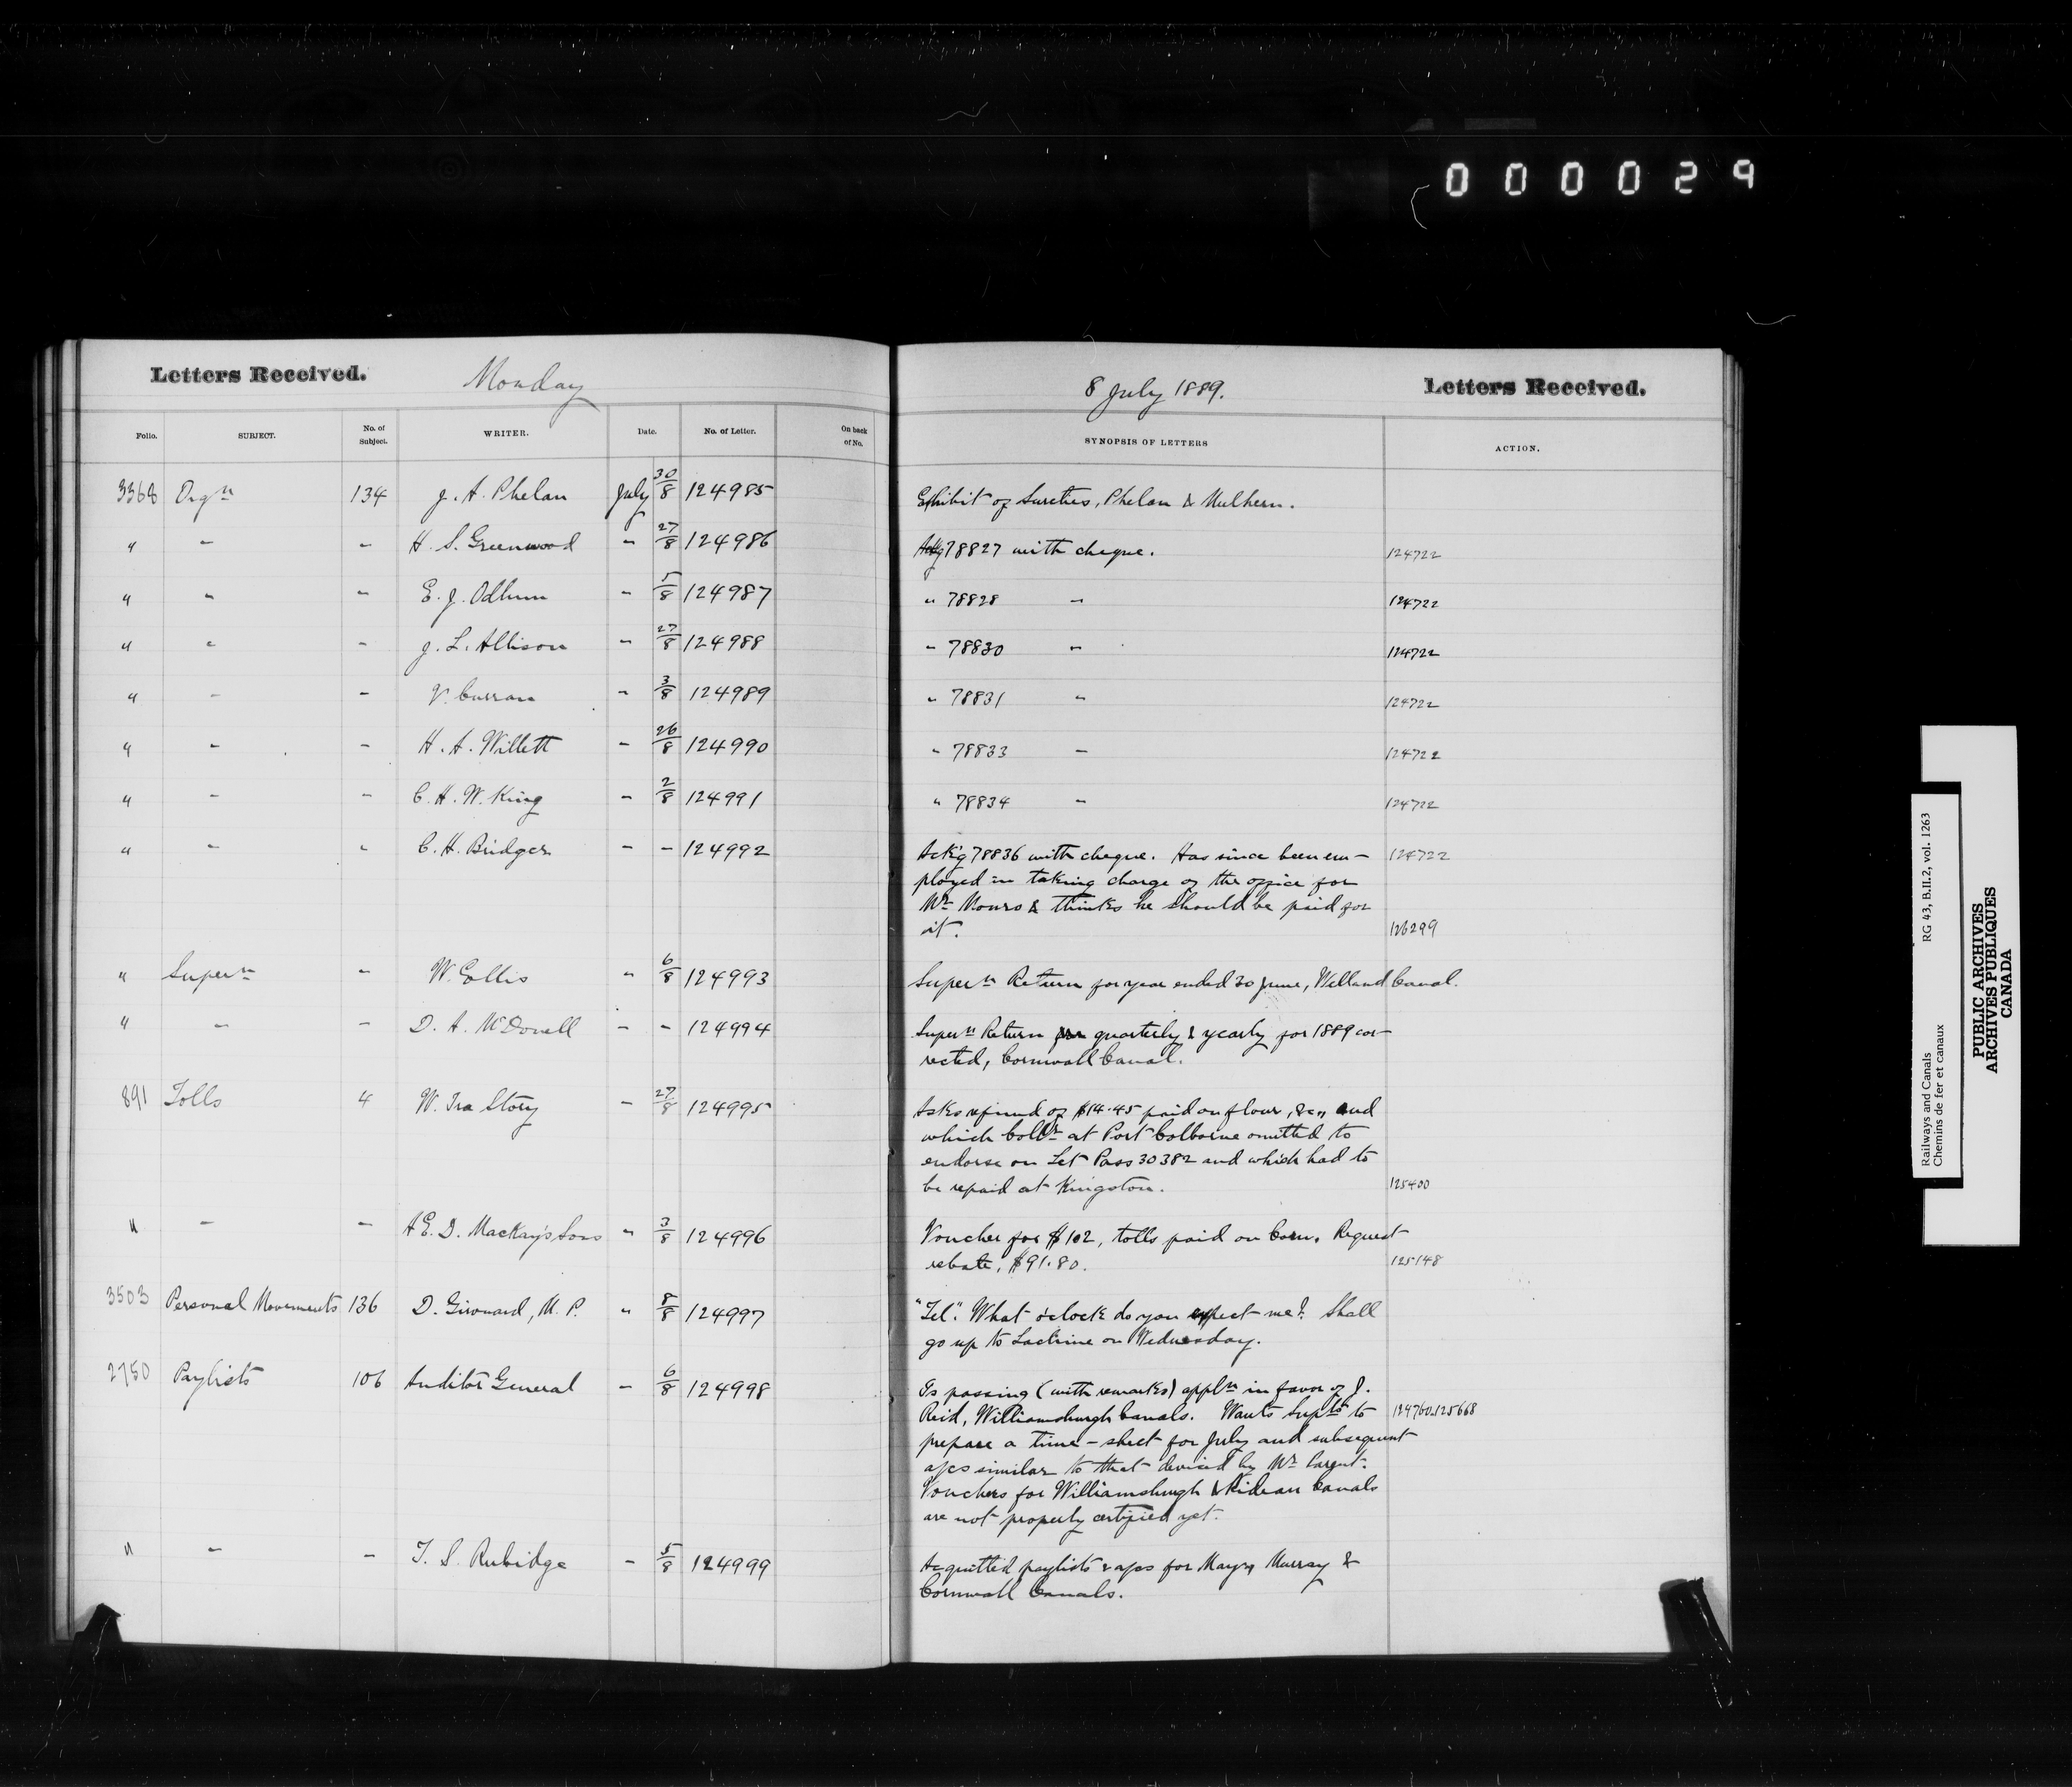 000029
Letters Received. Monday
8 July 1889. Letters Received.
Folio. SUBJECT. No. of Subject. WRITER. Date. No. of Letter. On back of No. SYNOPSIS OF LETTERS ACTION.
3368 Orgn 134 J. A. Phelan July 30/8 124985 Exhibit of Sureties, Phelan & Mulhern.
" - - H. S. Greenwood - 27/8 124986 Ackg 78827 with cheque. 124722
" - - E. J. Odlum - 5/8 124987 " 78828 - 124722
" - - J. L. Allison - 27/8 124988 " 78830 - 124722
" - - V. Curran - 3/8 124989 " 78831 - 124722
" - - H. A. Willett - 26/8 124990 " 78833 - 124722
" - - C. H. W. King - 2/8 124991 " 78834 - 124722
" - - C. H. Bridges - - 124992 Ack'g 78836 with cheque. Has since been em- 124722
ployed in taking charge of the office for
Mr. Monro & thinks he should be paid for
it. 126299
" Supern - W. Ellis " 6/8 124993 Supern Return for year ended 30 June, Welland Canal.
" - - D. A. McDonell - - 124994 Supern Return for quarterly & yearly for 1889 cor-
rected, Cornwall Canal.
891 Tolls 4 W. Ira Story - 27/8 124995 Asks refund of $14.45 paid on flour, &c,, and
which Collr at Port Colborne omitted to
endorse on Let Pass 30382 and which had to
be repaid at Kingston. 125400
" - - A E. D. Mackay's Sons " 3/8 124996 Voucher for $102, tolls paid on Corn. Request
rebate, $91.80. 125148
3503 Personal Movements 136 D. Girouard, M. P. " 8/8 124997 "Tel". What o'clock do you expect me? Shall
go up to Lachine on Wednesday.
2750 Paylists 106 Auditor General - 6/8 124998 Is passing (with remarks) appln in favor of J.
Reid, Williamsburgh Canals. Wants Supts to 124760.125668
prepare a time-sheet for July and subsequent
a/cs similar to that devised by Mr. Sargent.
Vouchers for Williamsburgh & Rideau Canals
are not properly certified yet.
" - - T. S. Rubidge - 5/8 124999 Acquitted paylists & a/cs for May, Murray &
Cornwall Canals.
Railways and Canals RG 43, B.II.2, vol. 1263
Chemins de fer et canaux
PUBLIC ARCHIVES
ARCHIVES PUBLIQUES
CANADA